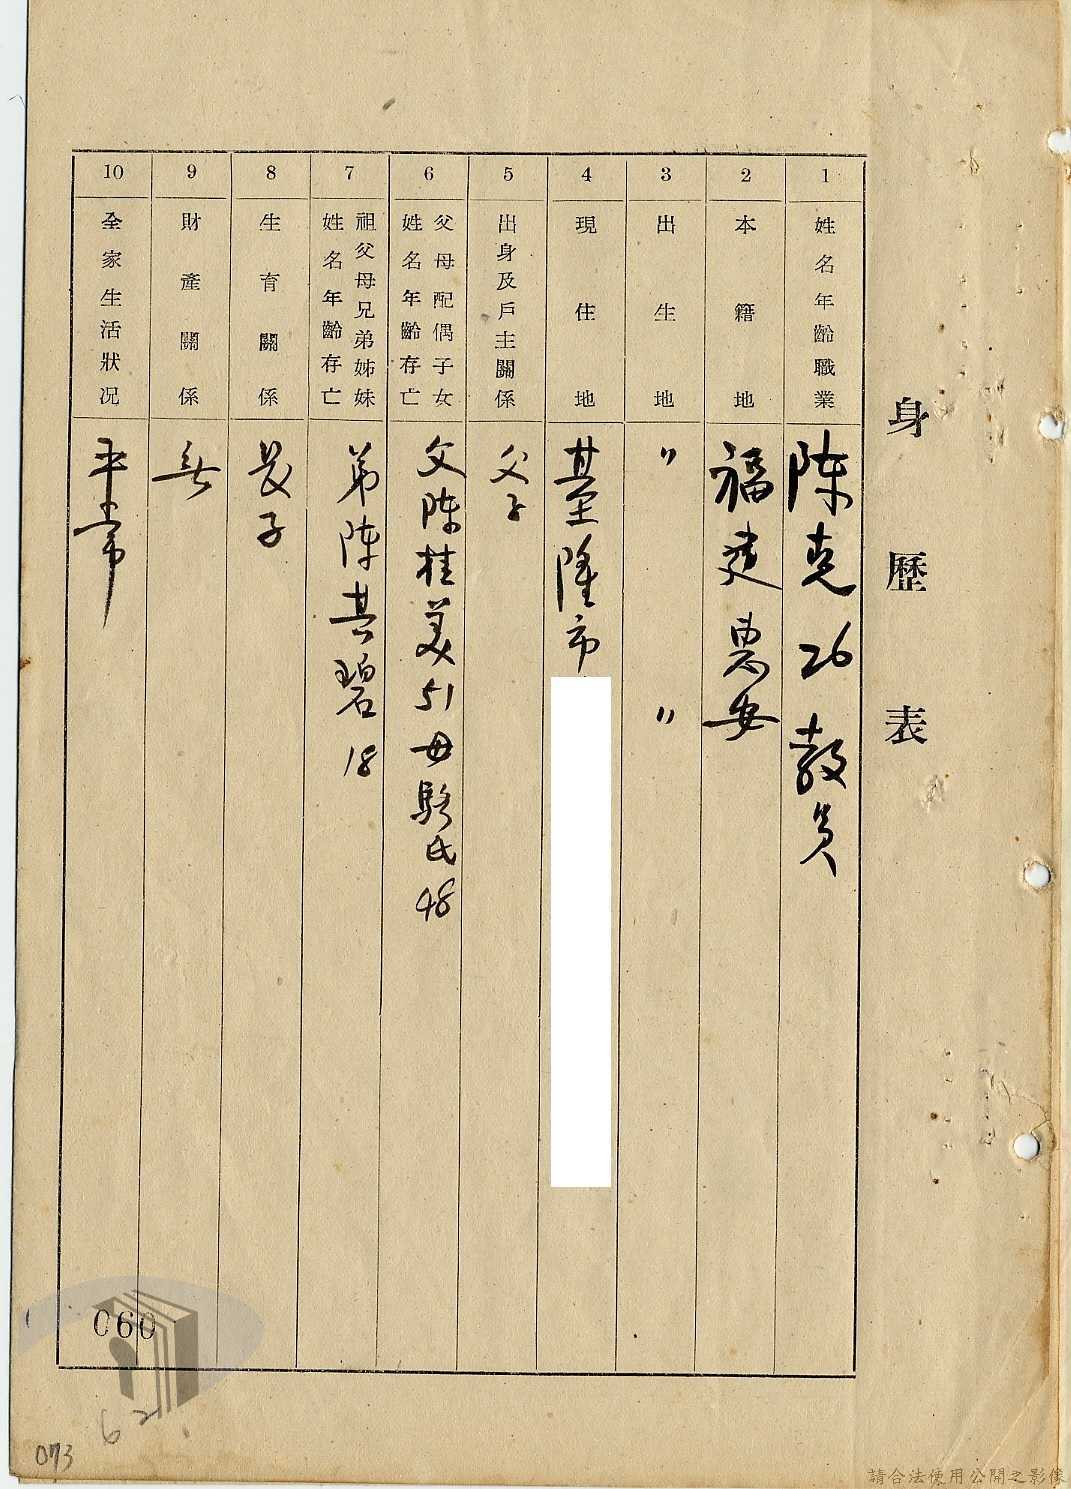 身歷表
1
姓名年齡職業
陈克 26 教員
2
本籍地
福建惠安
3
出生地
〃 〃
4
現住地
基隆市
5
出身及戶主關係
父子
6
父母配偶子女
姓名年齡存亡
父陈桂美51 母駱氏48
7
祖父母兄弟姊妹
姓名年齡存亡
弟陈其碧 18
8
生育關係
長子
9
財產關係
無
10
全家生活狀況
平常
060
62
073
請合法使用公開之影像